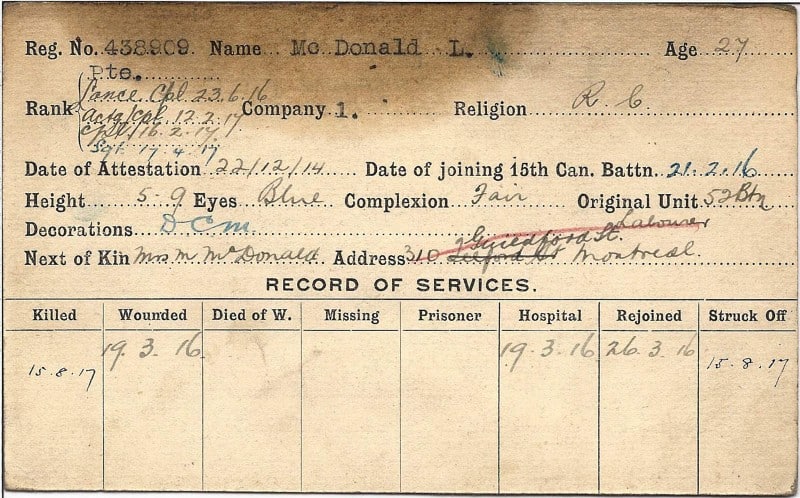 Reg. No. 438909 Name Mc Donald L. Age 27
Pte.
Rank Lance Cpl 23.6.16 Company 1. Religion R. C.
Actg/Cpl 12.2.17
Cpl 16.2.17
Sgt 17.4.17
Date of Attestation 22/12/14 Date of joining 15th Can. Battn. 21.2.16
Height 5-9 Eyes Blue Complexion Fair Original Unit 52 Btn
Decorations DCM. Labourer
Guildford St.
Next of Kin Mrs M. McDonald Address 310 Montreal.
RECORD OF SERVICES.
Killed Wounded Died of W. Missing Prisoner Hospital Rejoined Struck Off
15.8.17 19.3.16 19.3.16 26.3.16 15.8.17